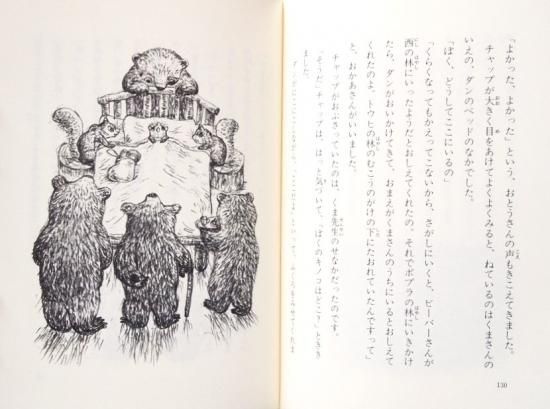 「よかった、よかった」という、おとうさんの声もきこえてきました。
チャップが大きく目をあけてよくよくみると、ねているのはくまさんの
いえの、ダンのベッドのなかでした。
「ぼく、どうしてここにいるの」
「くらくなってもかえってこないから、さがしにいくと、ビーバーさんが
西の林にいったようだとおしえてくれたの。それでポプラの林にいきかけ
たら、ダンがおいかけてきて、おまえがくまさんのうちにいるとおしえて
くれたのよ。トウヒの林のむこうのがけの下にたおれていたんですって」
と、おかあさんがいいました。
チャップがおぶさっていたのは、くま先生のせなかだったのです。
「そうだ」チャップは、は、と気づいて、「ぼくのキノコはどこ?」ときき
ました。
130